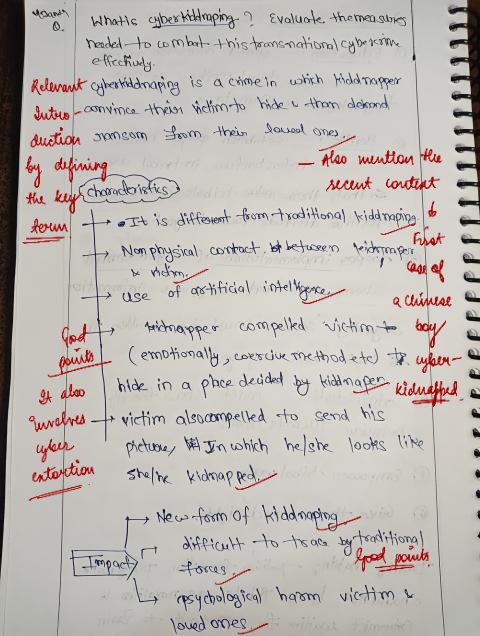 Q. What is cyberkiddnaping? Evaluate the measures
needed to combat this transnational cybercrime
effectively.
Relevant
Intro-
duction
by defining
the key
term
cyberkiddnaping is a crime in which kiddnapper
convince their victim to hide & then demand
ransom from their loved ones.
— Also mention the
recent context
&
First
case of
a Chinese
boy
cyber-
kidnapped.
characteristics
It is different from traditional kiddnaping.
Non physical contact between kidnnaper
& victim.
use of artificial intelligence.
Good
points
kidnapper compelled victim to
(emotionally, coercive method etc) to
hide in a place decided by kiddnaper
It also
involves
cyber
extortion
victim also compelled to send his
picture, In which he/she looks like
she/he kidnapped.
Impact
New form of kiddnaping
difficult to trace by traditional
forces
Good points
psychological harm victim &
loved ones.